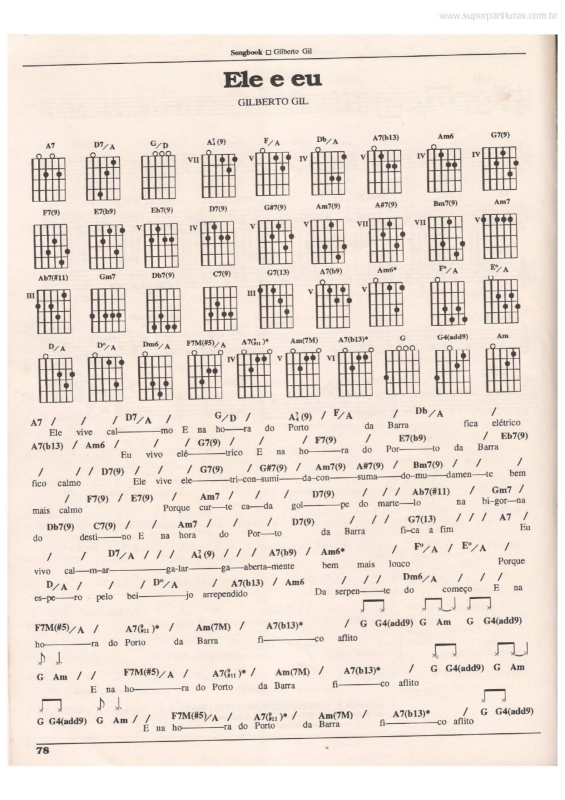 www.superpartituras.com.br
Songbook □ Gilberto Gil
Ele e eu
GILBERTO GIL
A7 D7/A G/D A7/4(9) F/A Db/A A7(b13) Am6 G7(9)
VII V IV IV IV
F7(9) E7(b9) Eb7(9) D7(9) G#7(9) Am7(9) A#7(9) Bm7(9) Am7
V IV V VII VII V
Ab7(#11) Gm7 Db7(9) C7(9) G7(13) A7(b9) Am6* F°/A E°/A
III III V V
D/A D°/A Dm6/A F7M(#5)/A A7(9/#11)* Am(7M) A7(b13)* G G4(add9) Am
IV V VI
A7 / / / D7/A / G/D / A7/4(9) / F/A / Db/A /
Ele vive cal——mo E na ho——ra do Porto da Barra fica elétrico
A7(b13) / Am6 / / / G7(9) / / / F7(9) / E7(b9) / Eb7(9)
Eu vivo elé——trico E na ho——ra do Por——to da Barra
/ / / D7(9) / / / G7(9) / G#7(9) / Am7(9) A#7(9) / Bm7(9) / /
fico calmo Ele vive ele——tri-con-sumi——da-con——suma——do-mu——damen—te bem
/ F7(9) / E7(9) / Am7 / / / D7(9) / / / Ab7(#11) / Gm7 /
mais calmo Porque cur—te ca—da gol——pe do marte—lo na bi-gor—na
Db7(9) C7(9) / / Am7 / / / D7(9) / / / G7(13) / / / A7 /
do desti—no E na hora do Por—to da Barra fi—ca a fim Eu
/ / D7/A / / / A7/4(9) / / / A7(b9) / Am6* / / F°/A / E°/A /
vivo cal—m-ar——ga-lar——ga—aberta-mente bem mais louco Porque
D/A / / / D°/A / A7(b13) / Am6 / / / Dm6/A / / /
es-pe—ro pelo bei——jo arrependido Da serpen—te do começo E na
F7M(#5)/A / A7(9/#11)* / Am(7M) / A7(b13)* / G G4(add9) G Am G G4(add9)
ho——ra do Porto da Barra fi——co aflito
G Am / / F7M(#5)/A / A7(9/#11)* / Am(7M) / A7(b13)* / G G4(add9)
E na ho——ra do Porto da Barra fi——co aflito
G G4(add9) G Am / / F7M(#5)/A / A7(9/#11)* / Am(7M) / A7(b13)* / G G4(add9)
E na ho——ra do Porto da Barra fi——co aflito
78